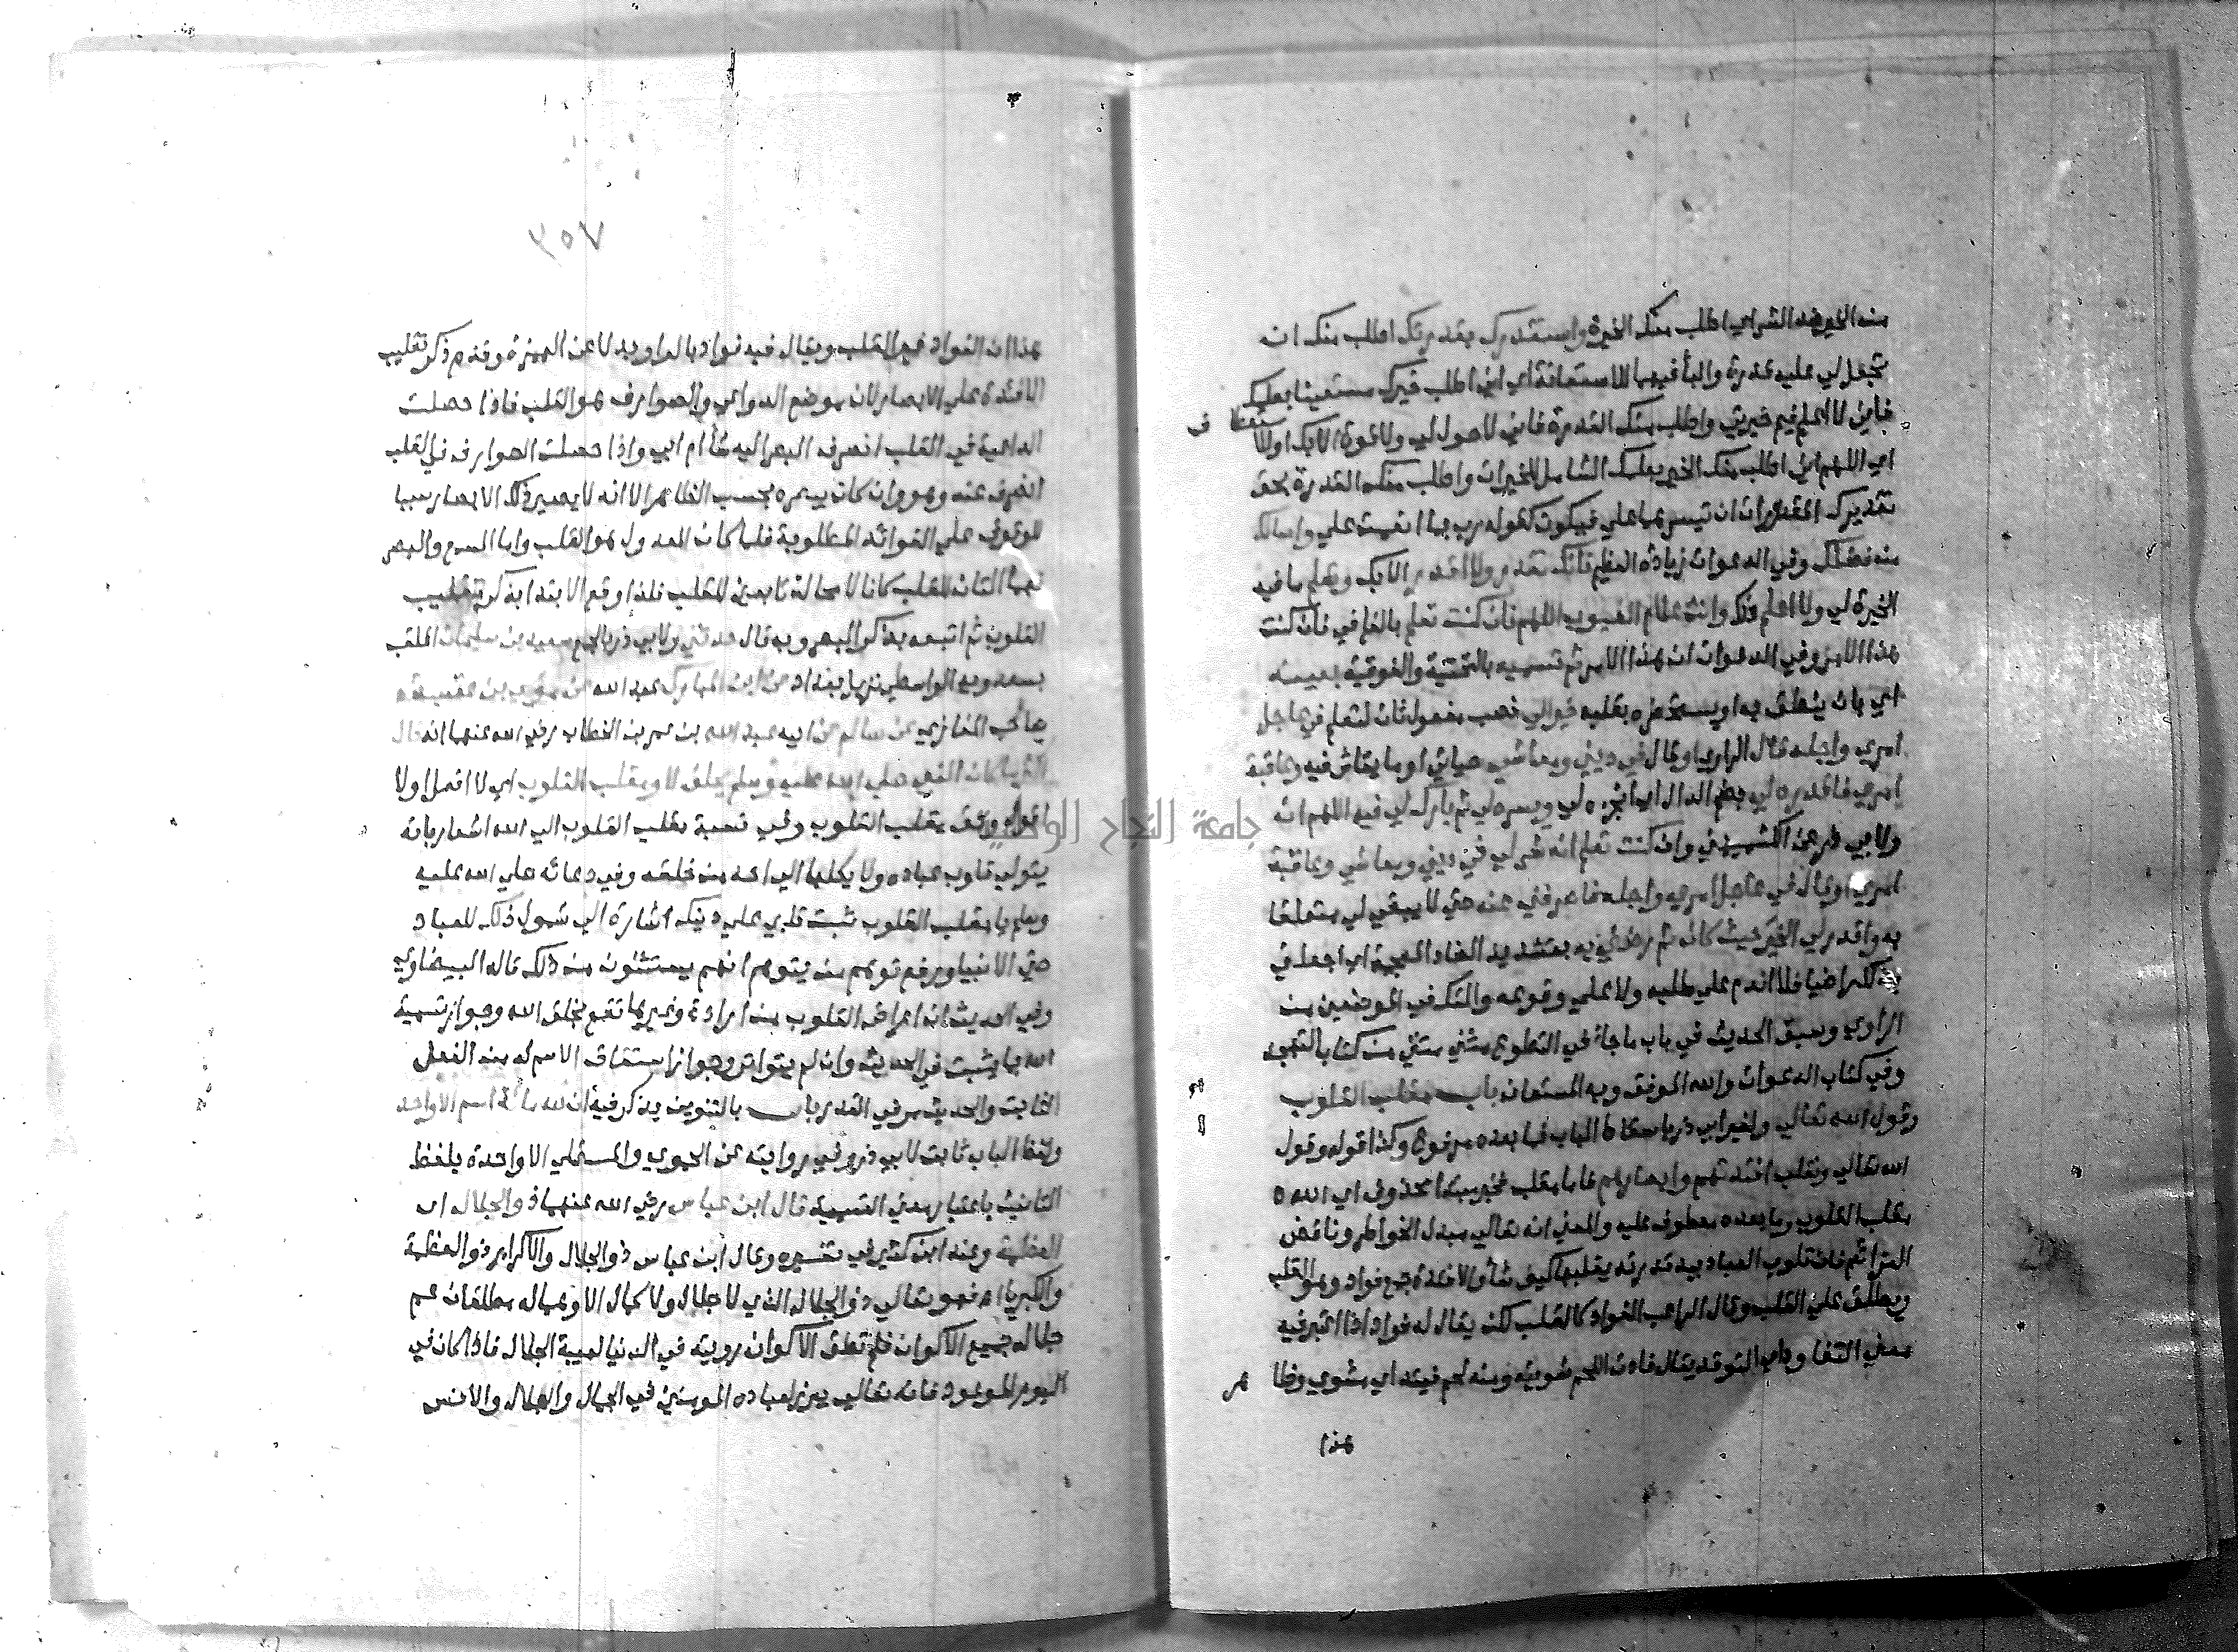 منه الخير ضد الشر اي اطلب منك الخيرة واستقدرك بقدرتك اطلب منك ان
تجعل لي عليه قدرة والبا فيهما للاستعانة اي اني اطلب خيرك مستعينا بعلمك
فاني لا اعلم فيم خيرتي واطلب منك القدرة فاني لا حول لي ولا قوة الا بك او للا
ستعطا ف
اي اللهم اني اطلب منك الخير بعلمك الشامل للخيرات واطلب منك القدرة بحق
تقديرك المقدورات ان تيسرهما علي فيكون كقوله رب بما انعمت علي واسالك
من فضلك وفي الدعوات زيادة العظيم فانك تقدر ولا اقدر الا بك وتعلم ما فيه
الخيرة لي ولا اعلم ذلك وانت علام الغيوب اللهم فان كنت تعلم بالفا في فان كنت
هذا الامر وفي الدعوات ان هذا الامر ثم تسميه بالتحتية والفوقية بعينه
اي بان ينطق به او يستحضره بقلبه خيرا لي نصب مفعول ثان لتعلم في عاجل
امري واجله قال الراوي او قال في ديني ومعاشي حياتي او ما يعاش فيه وعاقبة
امري فاقدره لي بضم الدال اي انجزه لي ويسره لي ثم بارك لي فيه اللهم انه
ولابي ذر عن الكشميهني وان كنت تعلم انه شر لي في ديني ومعاشي وعاقبة
امري او قال في عاجل امري واجله فاصرفني عنه حتي لا يبقي لي متعلقا
به واقدر لي الخير حيث كان ثم رضني به بتشديد الضاد المعجمة اي اجعلني
بذلك راضيا فلا اندم علي طلبه ولا علي وقوعه والشك في الموضعين من
الراوي وسبق الحديث في باب ما جا في التطوع مثني مثني من كتاب التهجد
وفي كتاب الدعوات والله الموفق وبه المستعان باب مقلب القلوب
وقول الله تعالي ولغير ابي ذر باسقاط الباب فما بعده مرفوع وكذا قوله وقول
الله تعالي ونقلب افئدتهم وابصارهم فاما مقلب فخبر مبتدا محذوف اي الله
مقلب القلوب وما بعده معطوف عليه والمعني انه تعالي مبدل الخواطر وناقض
العزائم فان قلوب العباد بيد قدرته يقلبها كيف شا والافئدة جمع فواد وهو القلب
ويطلق علي القلب وقال الراغب الفواد كالقلب لكن يقال له فواد اذا اعتبر فيه
معني التفاود اي التوقد يقال فادت اللحم شويته ومنه لحم فئيد اي مشوي وظا هر
هذا
٣٥٧
هذا ان الفواد غير القلب ويقال فيه فواد بالواو بدلا عن الهمزة وقدم ذكر تقليب
الافئدة علي الابصار لان موضع الدواعي والصوارف هو القلب فاذا حصلت
الداعية في القلب انصرف البصر اليه شا ام ابي واذا حصلت الصوارف في القلب
انصرف عنه وهو وان كان يبصره بحسب الظاهر الا انه لا يصير ذلك الابصار سببا
للوقوف علي الفوائد المطلوبة فلما كان المعدول هو القلب واما السمع والبصر
فهما التان للقلب كانا لا محالة تابعين للقلب فلذا وقع الابتدا بذكر تقليب
القلوب ثم اتبعه بذكر البصر وبه قال حدثني ولابي ذر بالجمع سعيد بن سليمان الملقب
بسعدويه الواسطي نزيل بغداد عن ابن المبارك عبد الله عن موسي بن عقبة
صاحب المغازي عن سالم عن ابيه عبد الله بن عمر بن الخطاب رضي الله عنهما انه قال
اكثر ما كان النبي صلي الله عليه وسلم يحلف لا ومقلب القلوب اي لا افعل او لا
اقول وحق مقلب القلوب وفي نسبة تقلب القلوب الي الله اشعار بانه
يتولي قلوب عباده ولا يكلها الي احد من خلقه وفي دعائه صلي الله عليه
وسلم يا مقلب القلوب ثبت قلبي علي دينك اشارة الي شمول ذلك للعباد
حتي الانبيا ويرفع توهم من يتوهم انهم يستثنون من ذلك قاله البيضاوي
وفي الحديث ان اعراض القلوب من ارادة وغيرها تقع بخلق الله وجواز تسمية
الله بما يثبت في الحديث وان لم يتواتر وجواز اشتقاق الاسم له من الفعل
الثابت والحديث مر في القدر باب بالتنوين يذكر فيه ان لله مائة اسم الا واحد
ولفظ الباب ثابت لابي ذر وفي روايته عن الحموي والمستملي الا واحدة بلفظ
التانيث باعتبار معني التسمية قال ابن عباس رضي الله عنهما ذو الجلال اي
العظمة وعند ابن كثير في تفسيره وقال ابن عباس ذو الجلال والاكرام ذو العظمة
والكبريا اه فهو تعالي ذو الجلال الذي لا جلال ولا كمال الا وهما له مطلقان عم
جلاله جميع الاكوان فلم تطق الاكوان رويته في الدنيا لهيبة الجلال فاذا كان في
اليوم الموعود فانه تعالي يبرز لعباده المومنين في الجمال والجلال والانس
جامعة النجاح الوطنية